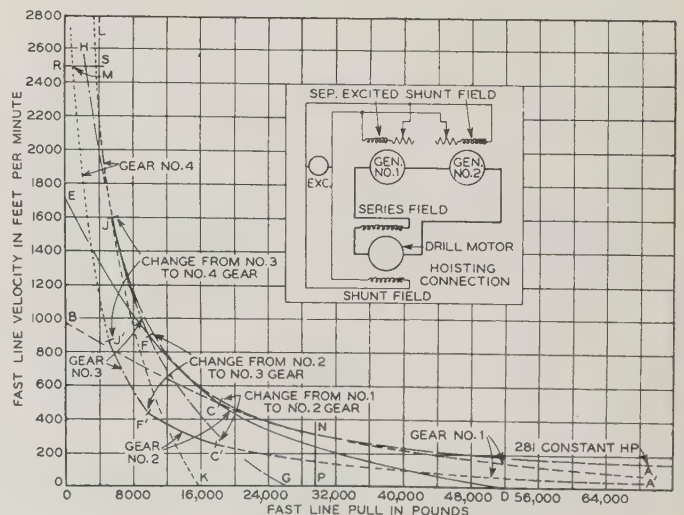 FAST LINE VELOCITY IN FEET PER MINUTE
2800
2600
2400
2200
2000
1800
1600
1400
1200
1000
800
600
400
200
0
L
H
R
S
M
GEAR NO.4
E
J
CHANGE FROM NO.3
TO NO.4 GEAR
B
J'
F
GEAR
NO.3
CHANGE FROM NO.2
TO NO.3 GEAR
CHANGE FROM NO.1
TO NO.2 GEAR
C
F'
N
GEAR
NO.2
C'
GEAR NO.1
281 CONSTANT HP
A
A'
K
G
P
D
SEP. EXCITED SHUNT FIELD
GEN.
NO.1
GEN.
NO.2
EXC.
SERIES FIELD
DRILL MOTOR
HOISTING
CONNECTION
SHUNT FIELD
0 8000 16,000 24,000 32,000 40,000 48,000 56,000 64,000
FAST LINE PULL IN POUNDS